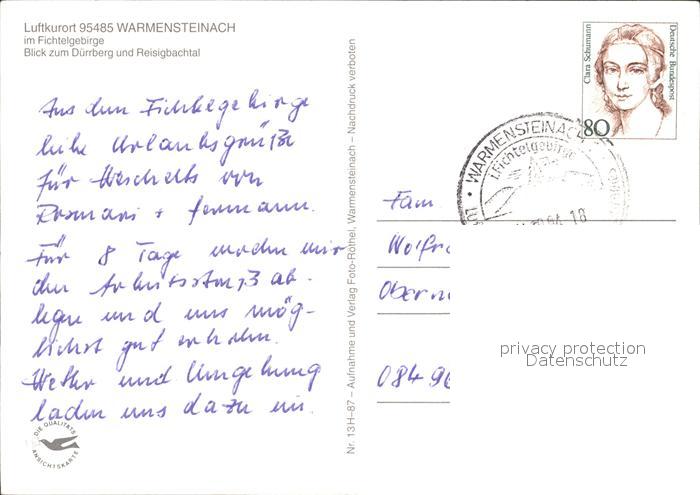 Luftkurort 95485 WARMENSTEINACH
im Fichtelgebirge
Blick zum Dürrberg und Reisigbachtal
Aus dem Fichtelgebirge
liebe Urlaubsgrüße
für Wescheits von
Rosmari + Hermann.
Für 8 Tage wollen wir
den Arbeitsstreß ab-
legen und uns mög-
lichst gut erholen.
Wetter und Umgebung
laden uns dazu ein.
DIE QUALITÄTS
ANSICHTSKARTE
Nr. 13H–87 – Aufnahme und Verlag Foto-Röthel, Warmensteinach – Nachdruck verboten
Clara Schumann
Deutsche Bundespost
80
WARMENSTEINACH
i. Fichtelgebirge
94 18
Fam
Wolfr
Obern
08496
privacy protection
Datenschutz